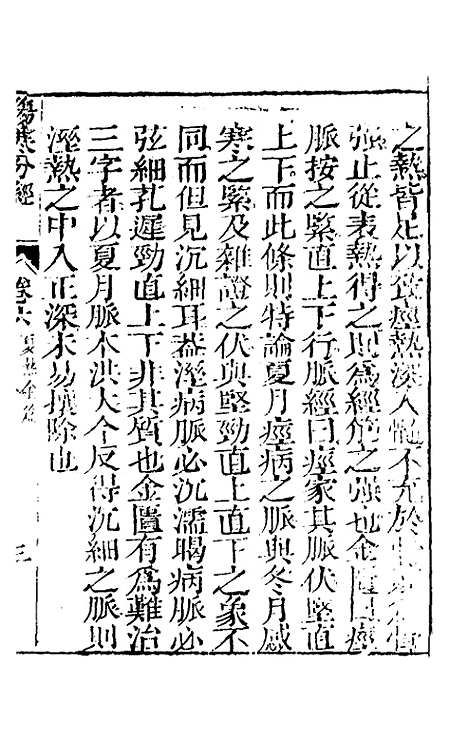 之熱皆足以致痙熱深入髓不充於
強止從表熱得之則為經筋之強也金匱曰痙
脈按之緊直上下行脈經曰痙家其脈伏堅直
上下而此條則特論夏月痙病之脈與冬月感
寒之緊及雜證之伏與堅勁直上直下之象不
同而但見沉細耳葢溼病脈必沉濡暍病脈必
弦細孔遲勁直上下非其質也金匱有為難治
三字者以夏月脈本洪大今反得沉細之脈則
溼熱之中入正深未易攘除也
傷寒分經
卷六
三